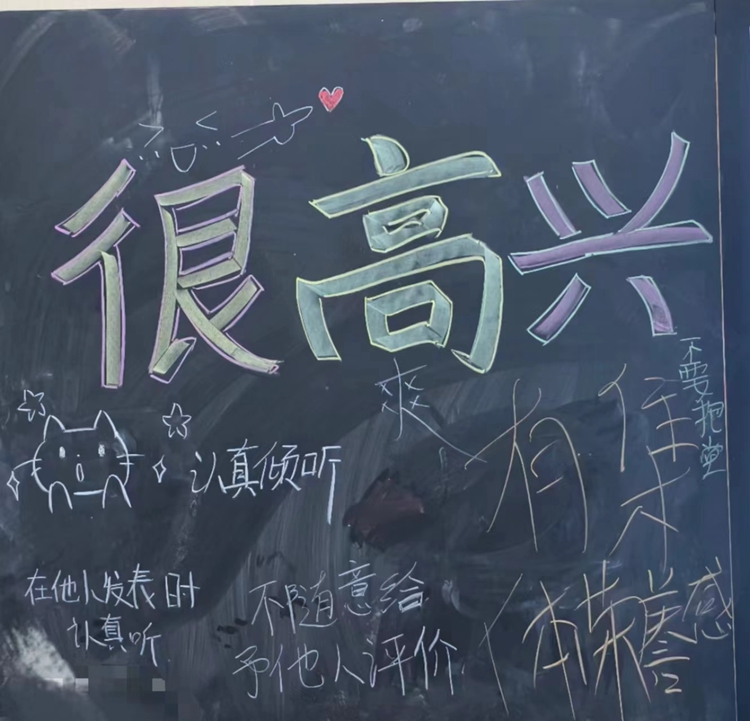 很高兴
爽
不要拖堂
认真倾听
有
在他人发表时
认真听
不随意给
予他人评价
体荣誉感